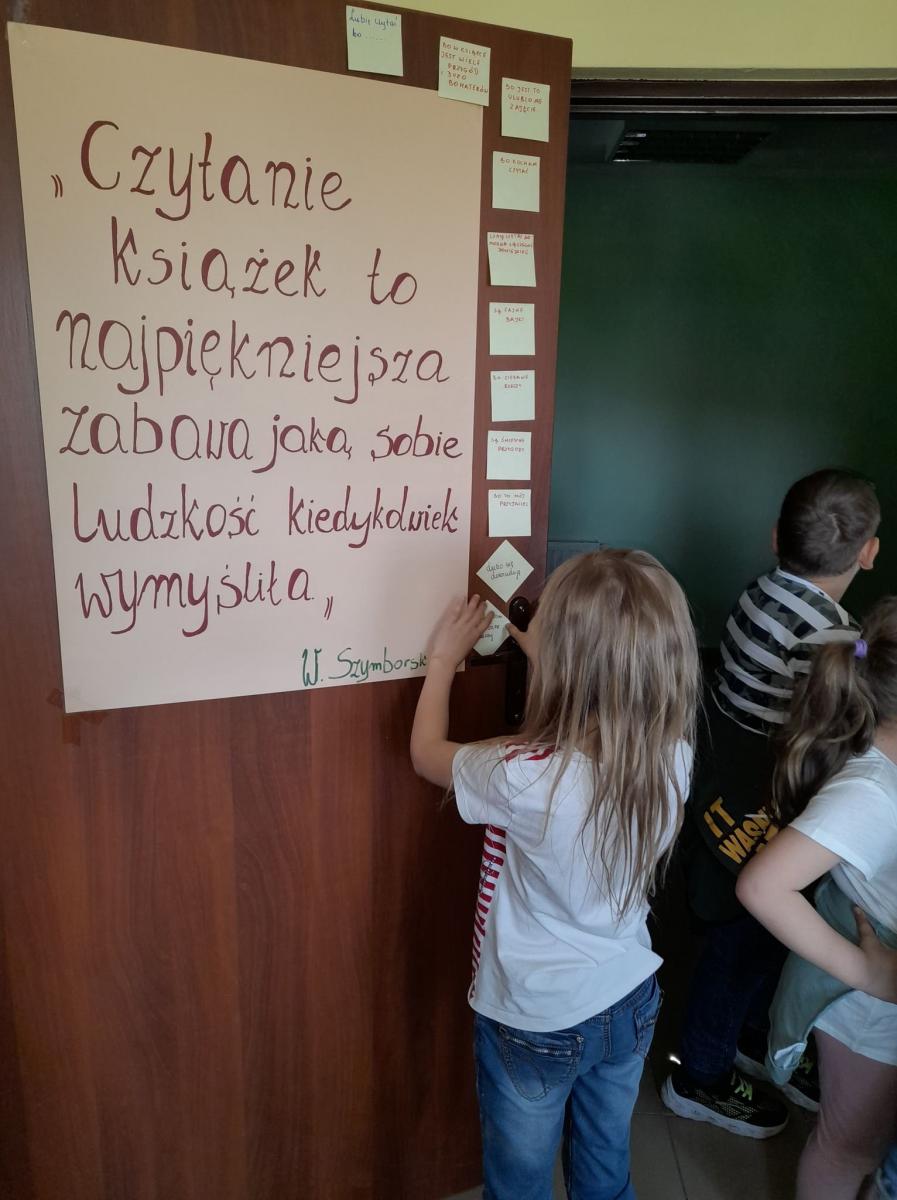 „Czytanie
książek to
najpiękniejsza
zabawa jaką sobie
ludzkość kiedykolwiek
wymyśliła."
W. Szymborsk
Lubię czytać
bo ......
BO W KSIĄŻCE
JEST WIELE
PRZYGÓD
I DUŻO
BOHATERÓW
BO JEST TO
ULUBIONE
ZAJĘCIE
BO KOCHAM
CZYTAĆ
SĄ FAJNE
BAJKI
BO CIEKAWE
RZECZY
SĄ ŚMIESZNE
PRZYGODY
BO TO MÓJ
PRZYJACIEL
dużo się
dowiaduję
IT
WAS